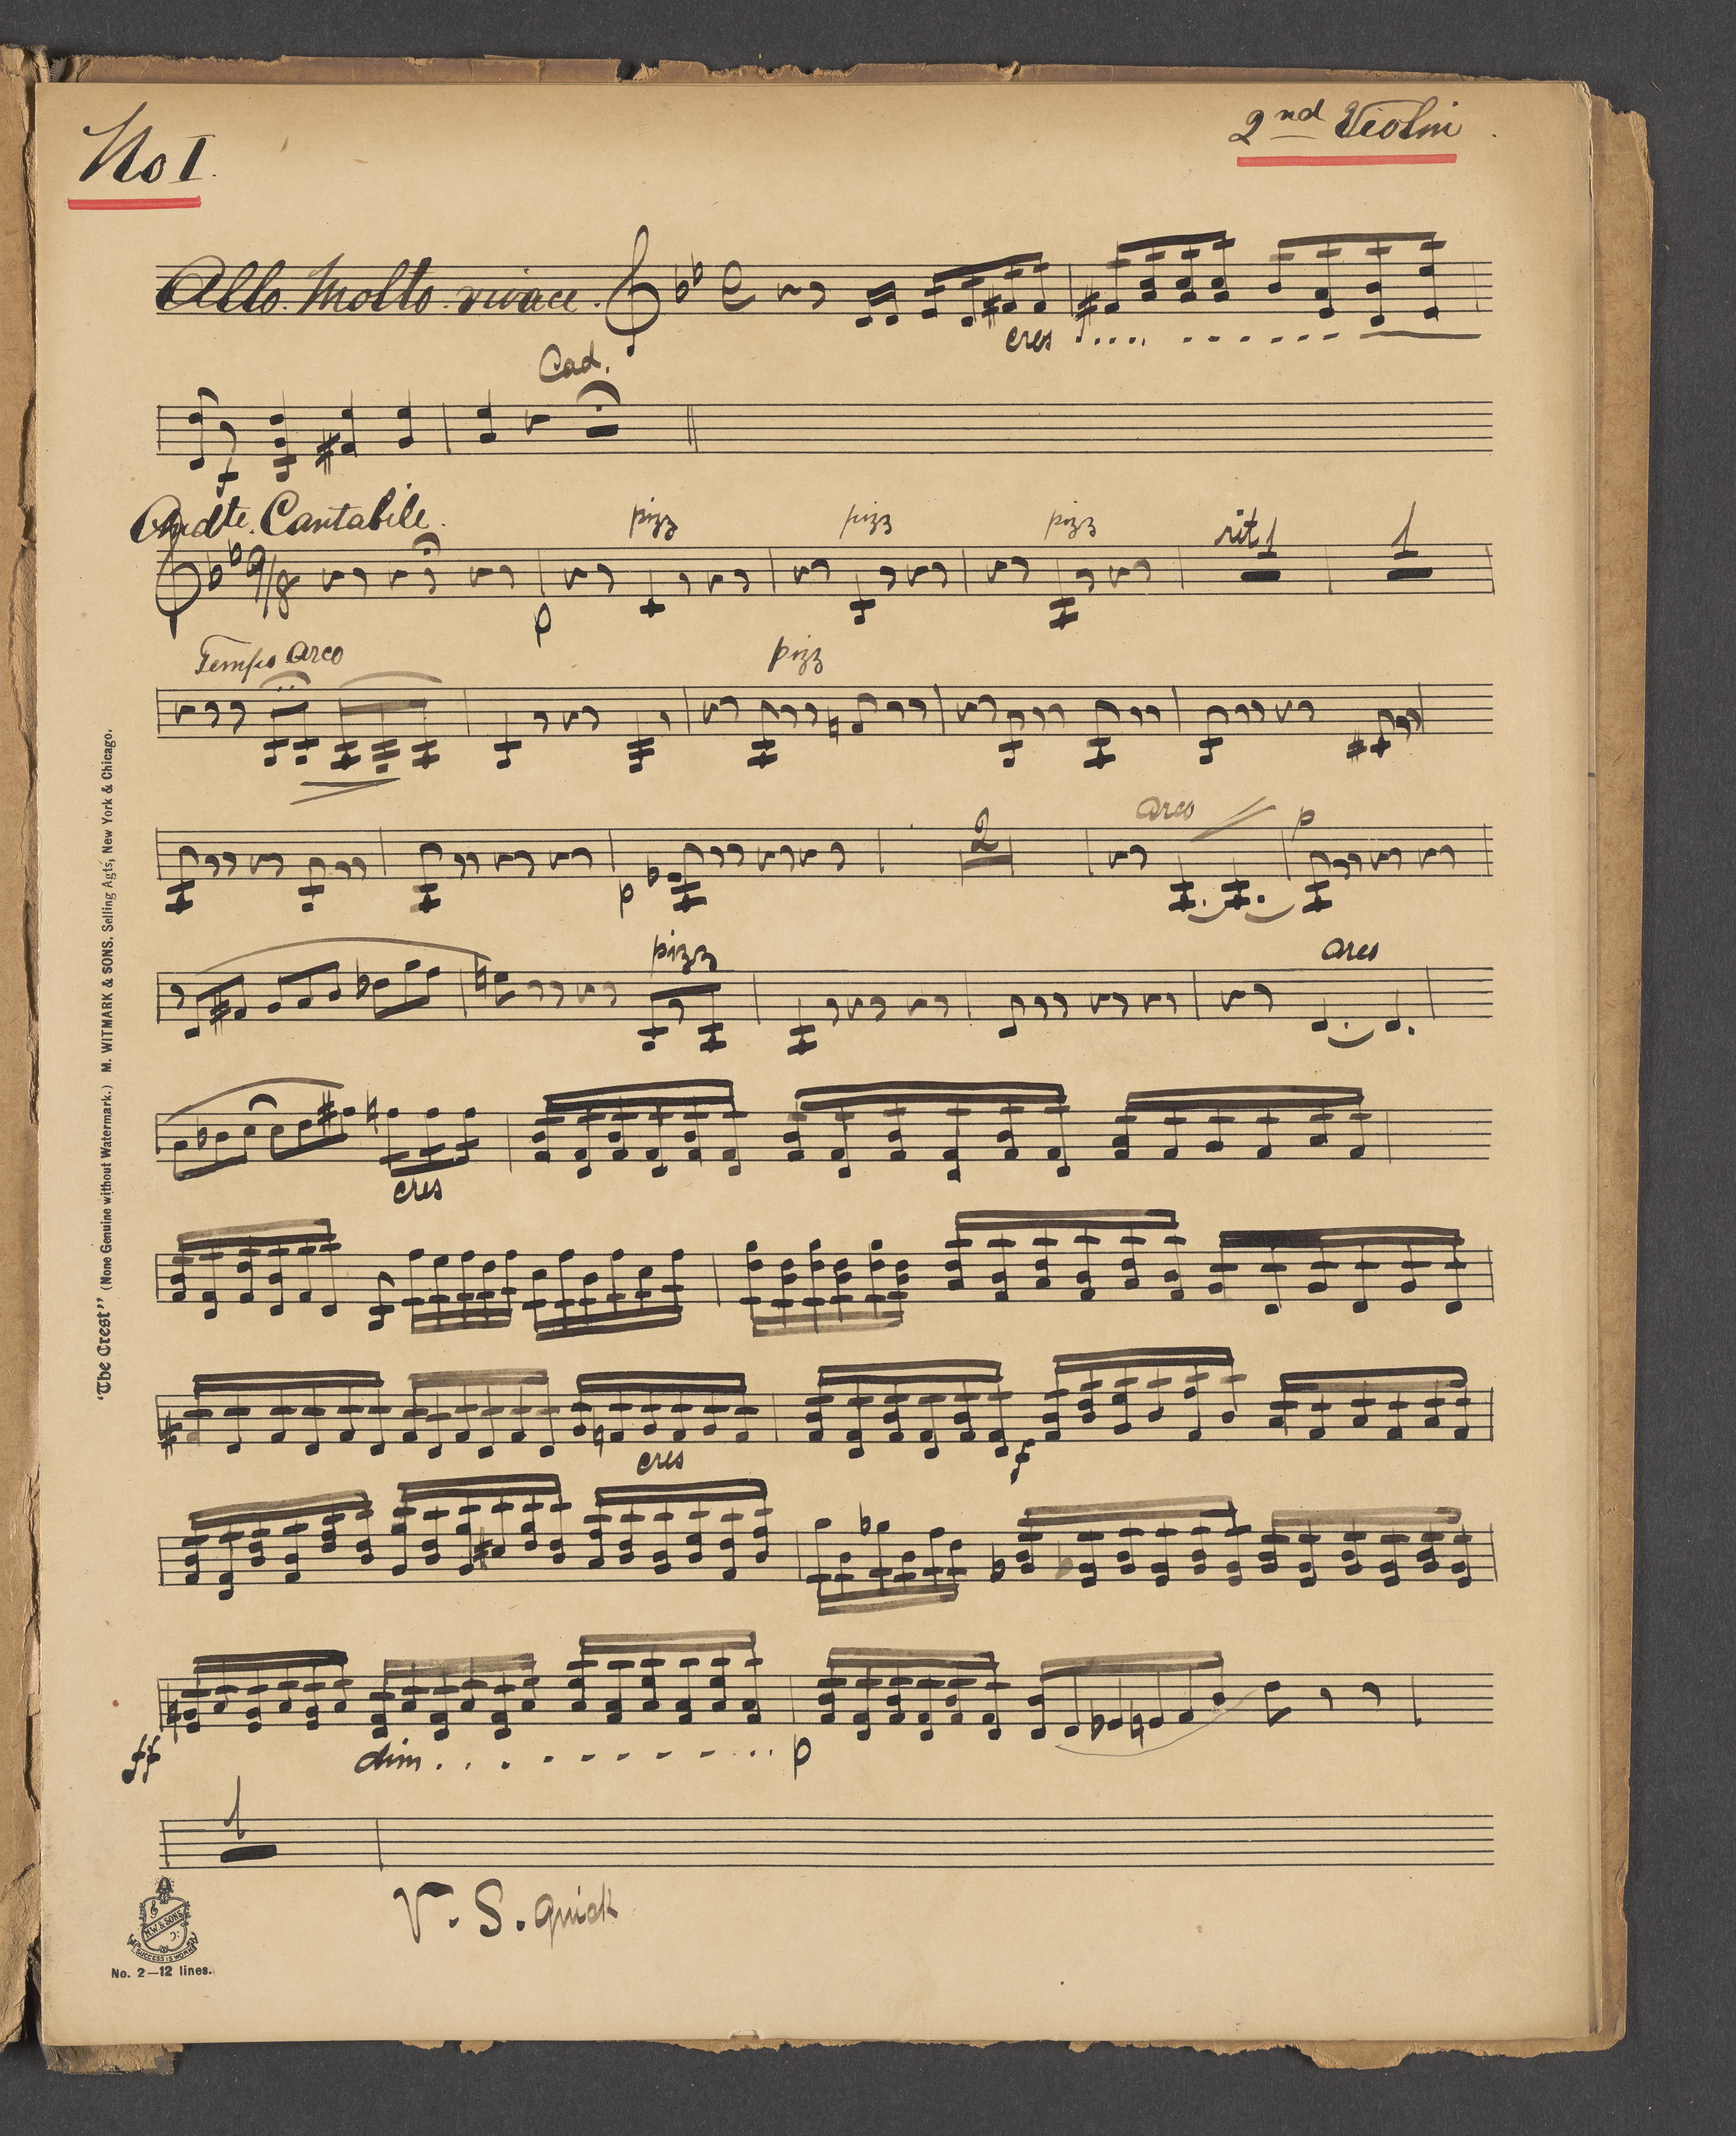 No I.
2nd Violin.
Allo. Molto vivace.
cres
Cad.
f
Andte. Cantabile.
9/8
pizz pizz pizz rit 1 1
p
Tempo arco pizz
2 arco p
p
pizz arco
cres
cres f
ff dim p
1
V. S. quick
"The Crest" (None Genuine without Watermark.) M. WITMARK & SONS, Selling Agts, New York & Chicago.
M.W. & SONS
SUCCESS IS WORK
No. 2—12 lines.